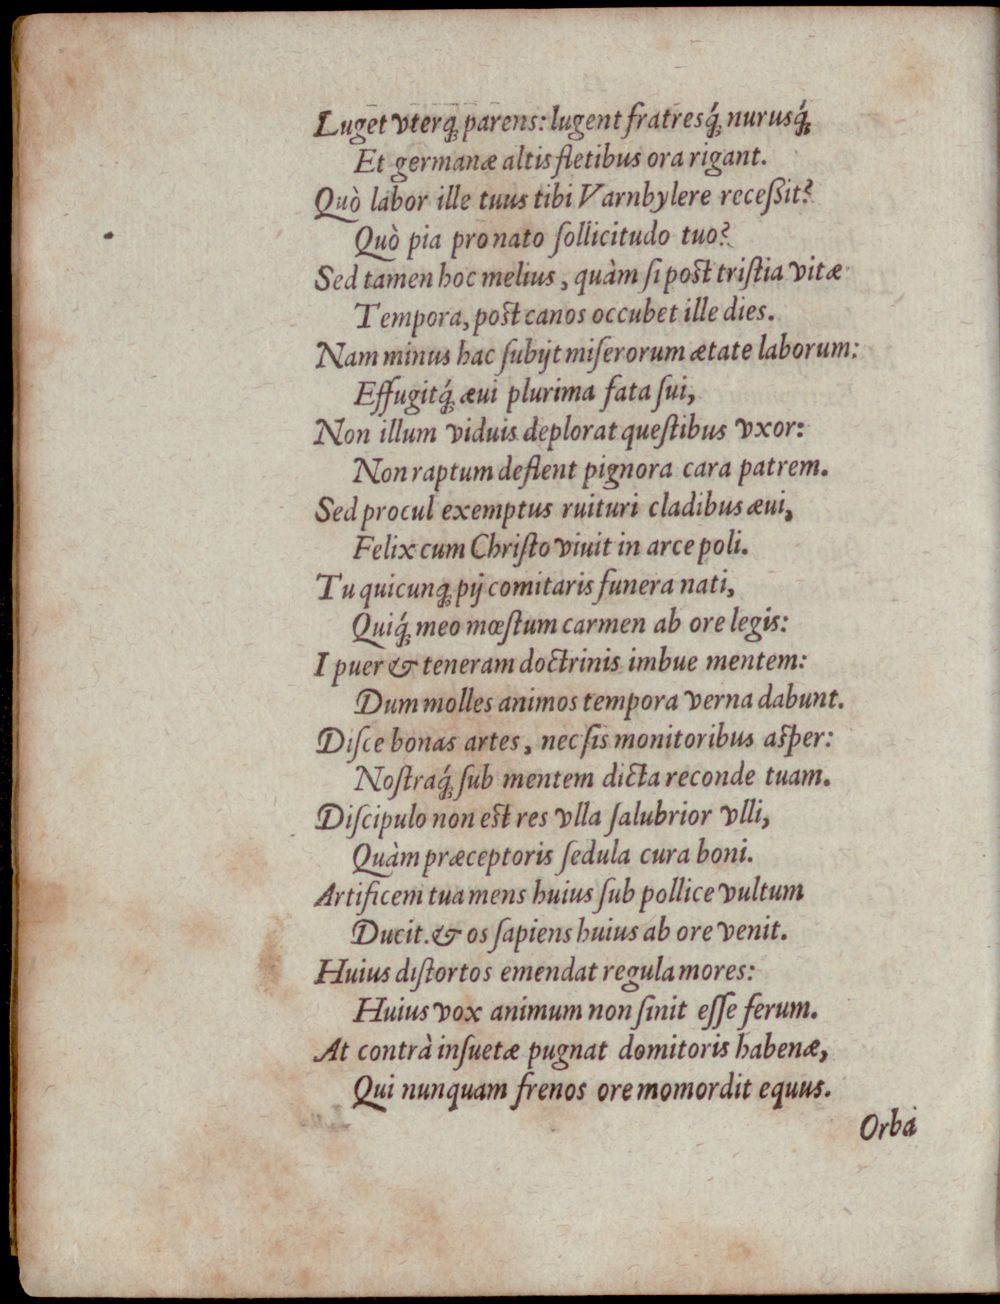 Luget vterq; parens: lugent fratresq́; nurusq́;
Et germanæ altis fletibus ora rigant.
Quò labor ille tuus tibi Varnbylere receſsit?
Quò pia pro nato ſollicitudo tuo?
Sed tamen hoc melius, quàm ſi poſt triſtia vitæ
Tempora, poſt canos occubet ille dies.
Nam minus hac ſubijt miſerorum ætate laborum:
Effugitq́; æui plurima fata ſui,
Non illum viduis deplorat queſtibus vxor:
Non raptum deflent pignora cara patrem.
Sed procul exemptus ruituri cladibus æui,
Felix cum Chriſto viuit in arce poli.
Tu quicunq; pij comitaris funera nati,
Quiq́; meo mœſtum carmen ab ore legis:
I puer & teneram doctrinis imbue mentem:
Dum molles animos tempora verna dabunt.
Diſce bonas artes, nec ſis monitoribus aſper:
Noſtraq́; ſub mentem dicta reconde tuam.
Diſcipulo non eſt res vlla ſalubrior vlli,
Quàm præceptoris ſedula cura boni.
Artificem tua mens huius ſub pollice vultum
Ducit. & os ſapiens huius ab ore venit.
Huius diſtortos emendat regula mores:
Huius vox animum non ſinit eſſe ferum.
At contrà inſuetæ pugnat domitoris habenæ,
Qui nunquam frenos ore momordit equus.
Orba